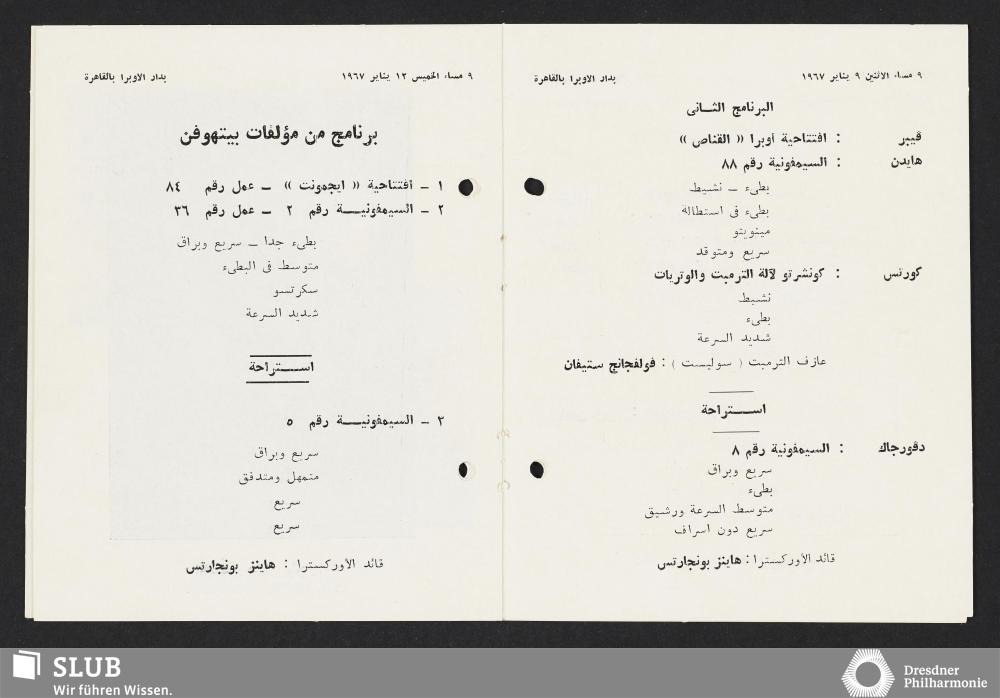 ٩ مساء الاثنين ٩ يناير ١٩٦٧ بدار الاوبرا بالقاهرة
البرنامج الثـــانى
ڤيبر : افتتاحية أوبرا « القناص »
هايدن : السيمفونية رقم ٨٨
بطىء ــ نشيط
بطىء فى استطالة
مينويتو
سريع ومتوقد
كورتس : كونشرتو لآلة الترمبت والوتريات
نشيط
بطىء
شديد السرعة
عازف الترمبت ( سوليست ) : فولفجانج ستيفان
اســـتراحة
دڤورجاك : السيمفونية رقم ٨
سريع وبراق
بطىء
متوسط السرعة ورشيق
سريع دون اسراف
قائد الأوركسترا : هاينز بونجارتس
٩ مساء الخميس ١٢ يناير ١٩٦٧ بدار الاوبرا بالقاهرة
برنامج من مؤلفات بيتهوفن
١ ــ افتتاحية « ايجمونت » ــ عمل رقم ٨٤
٢ ــ السيمفونيـــة رقم ٢ ــ عمل رقم ٣٦
بطىء جدا ــ سريع وبراق
متوسط فى البطىء
سكرتسو
شديد السرعة
اســـتراحة
٣ ــ السيمفونيـــة رقم ٥
سريع وبراق
متمهل ومتدفق
سريع
سريع
قائد الأوركسترا : هاينز بونجارتس
SLUB
Wir führen Wissen.
Dresdner
Philharmonie